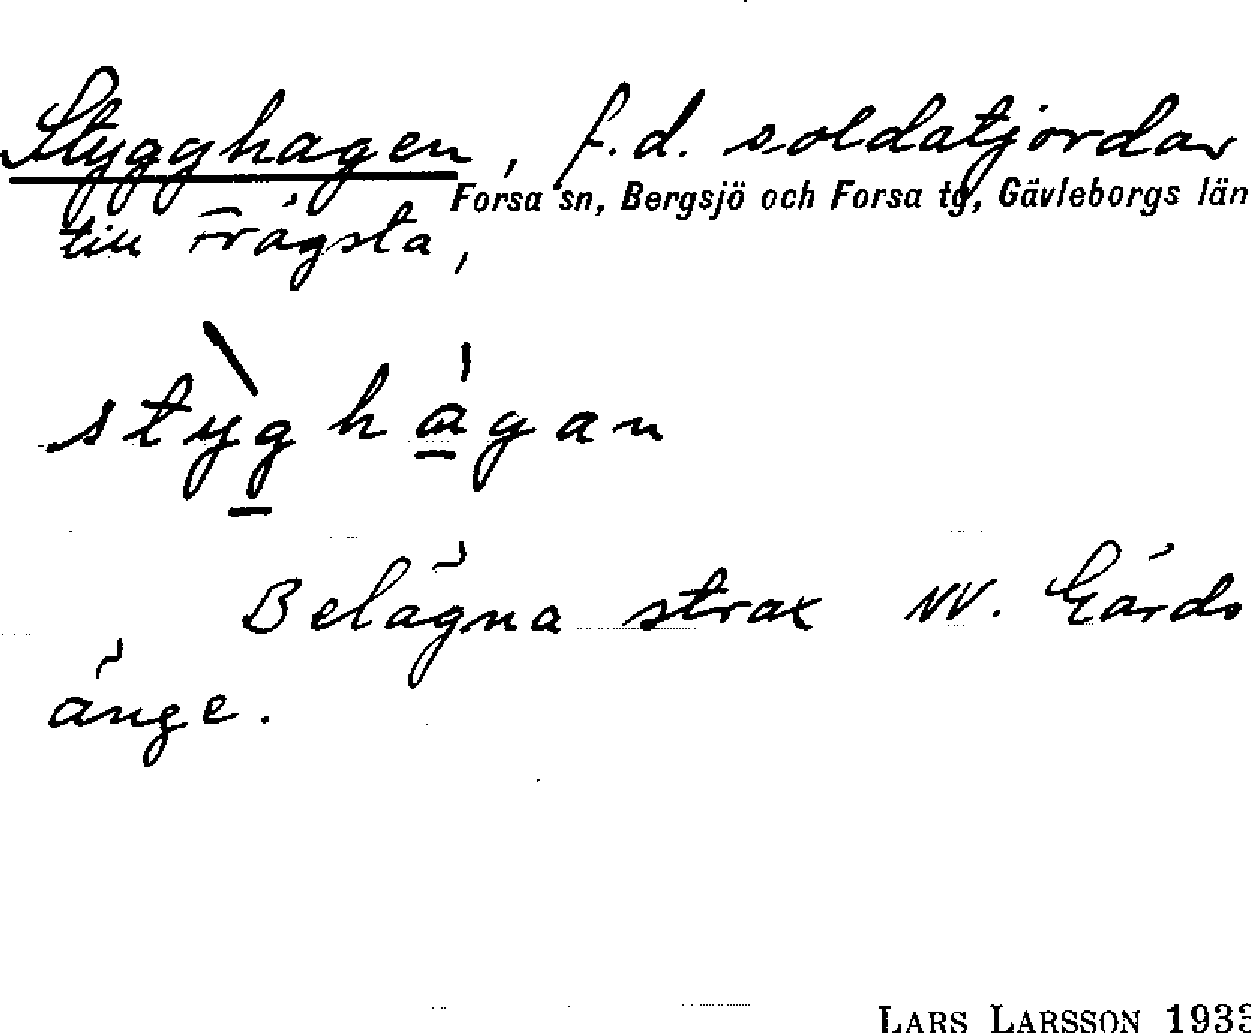 Stygghagen, f.d. soldatjordar
Forsa sn, Bergsjö och Forsa tg, Gävleborgs län
till Frägsta,
stỳg hágan
Belägna strax NV. Gärds
änge.
LARS LARSSON 1933